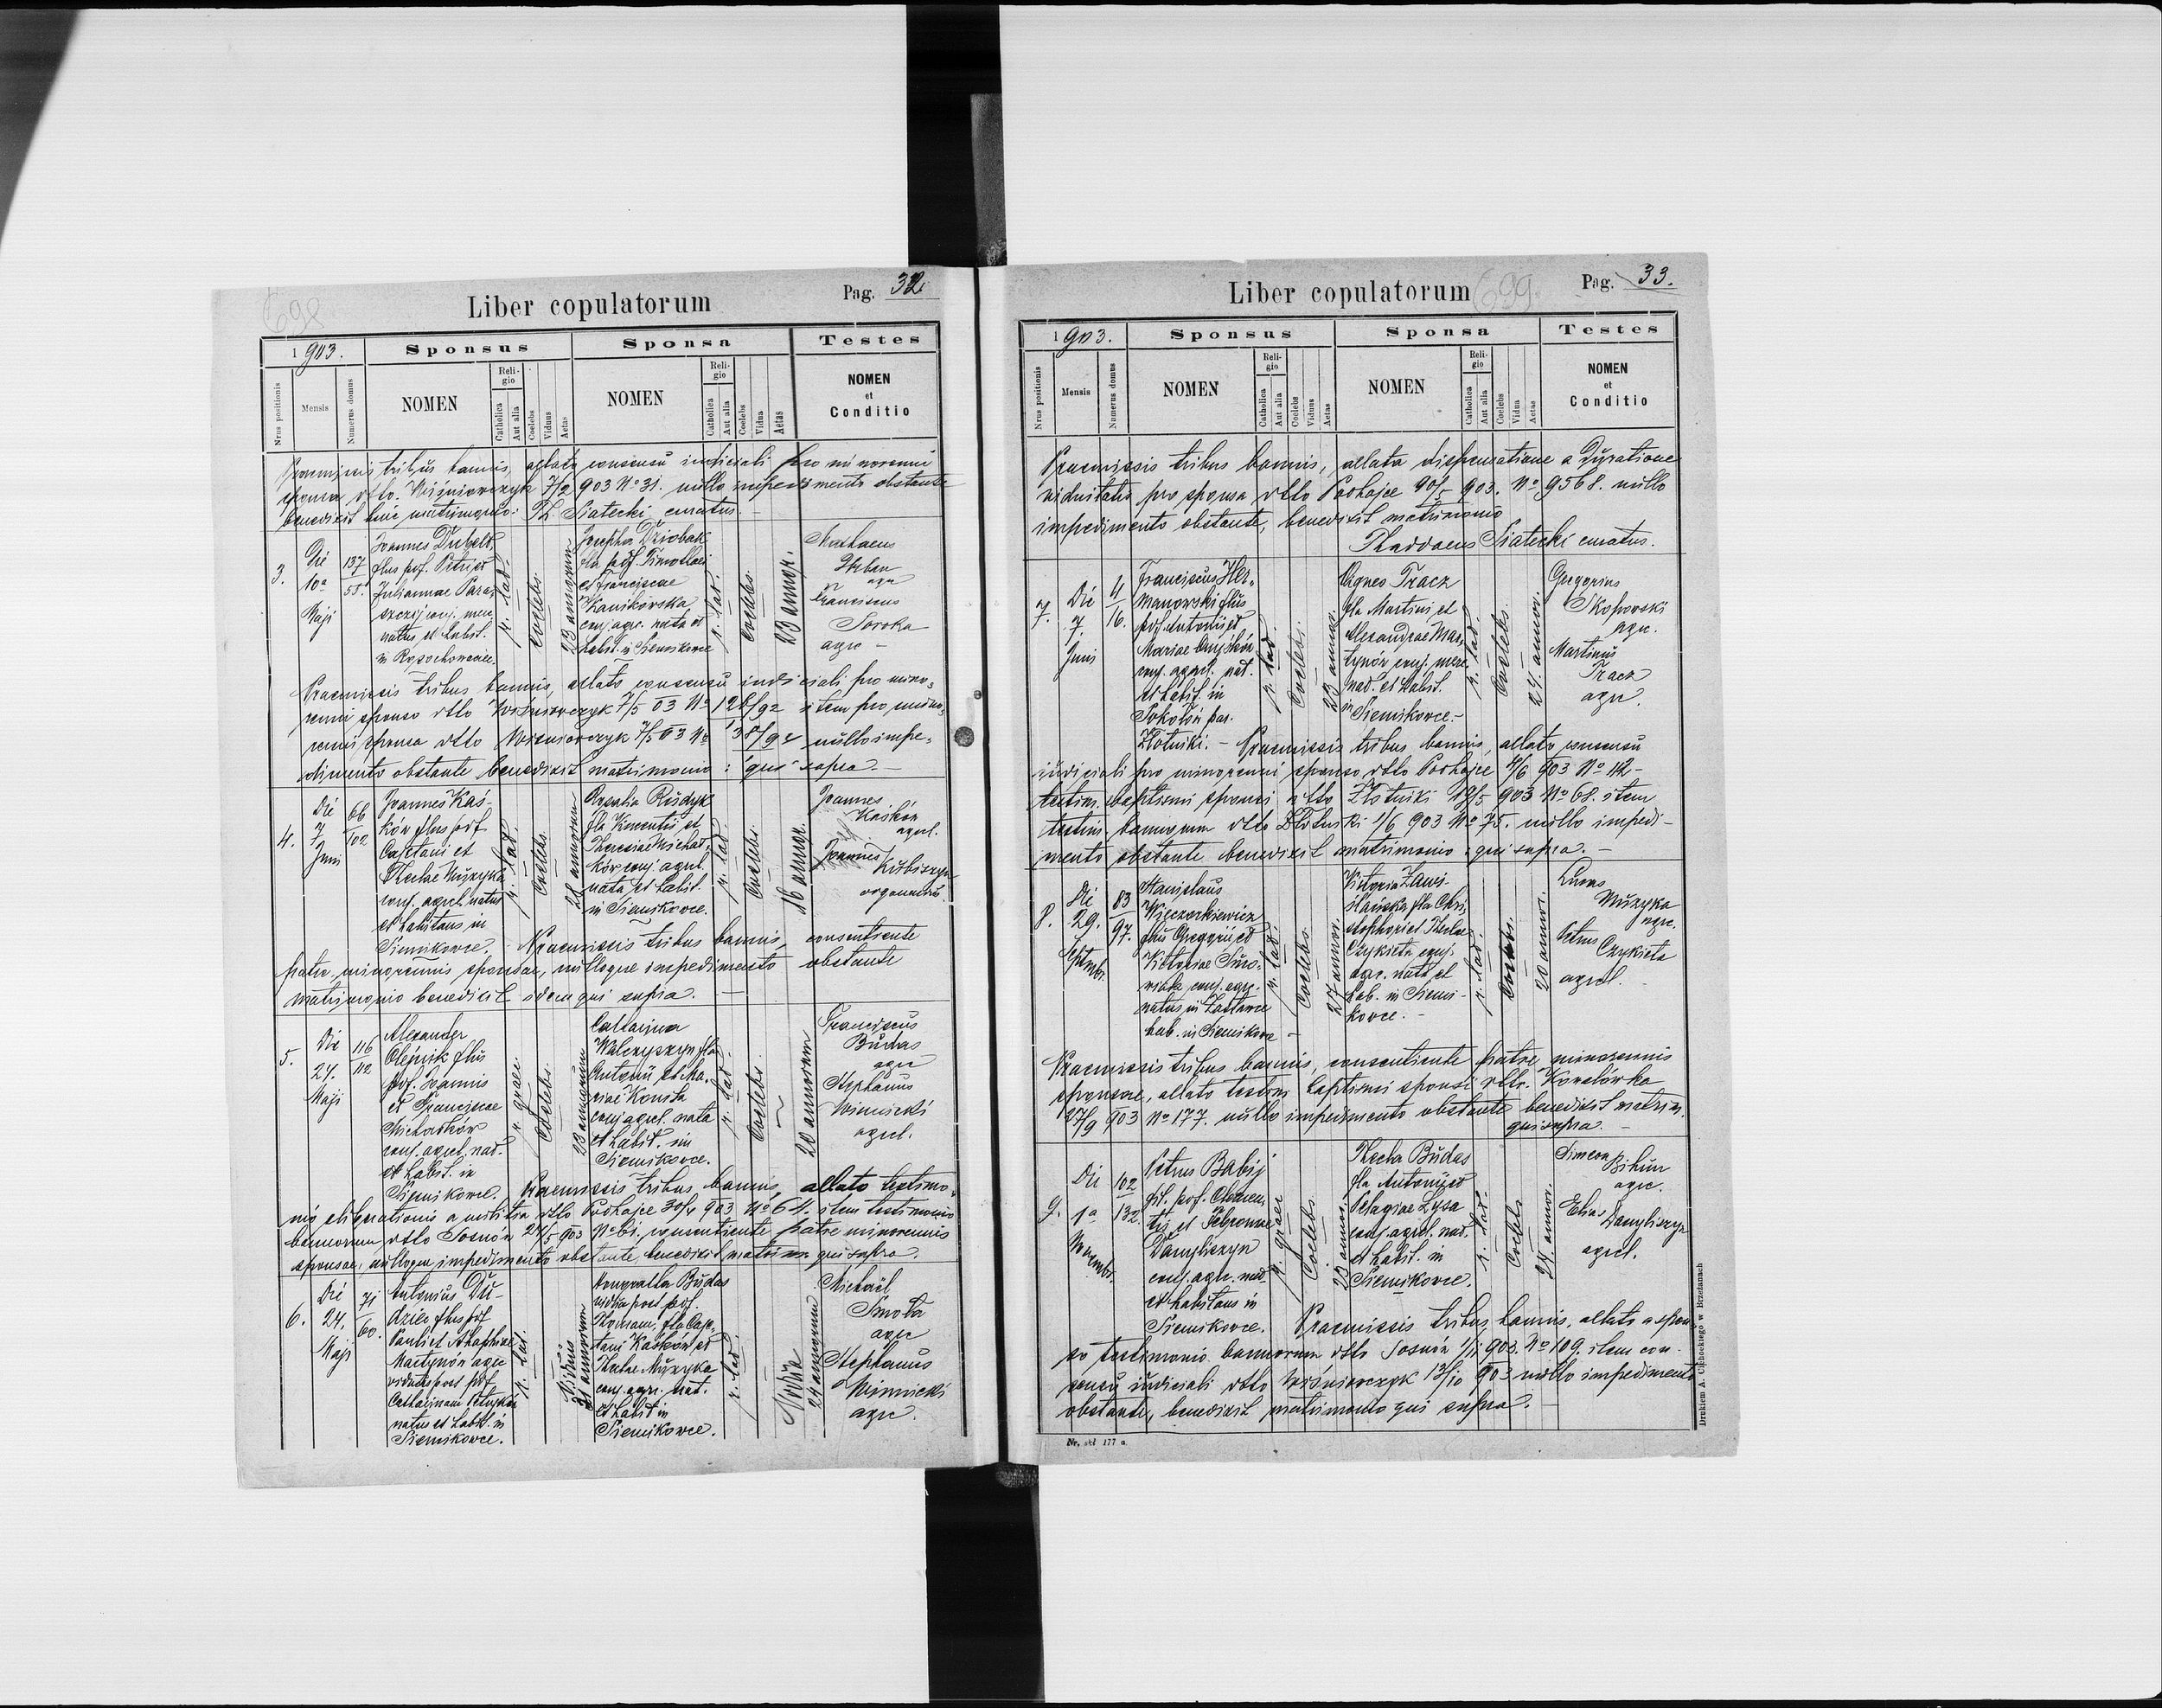 698
Liber copulatorum
Pag. 32
1903.
Sponsus
Sponsa
Testes
Nrus positionis
Mensis
Numerus domus
NOMEN
Religio
Catholica
Aut alia
Coelebs
Viduus
Aetas
NOMEN
Religio
Catholica
Aut alia
Coelebs
Vidua
Aetas
NOMEN
et
Conditio
Praemissis tribus bannis, allato consensu iudiciali pro minorenni
sponsa dtto. Wiśniowczyk 7/2 903 No 31. nullo impedimento obstante
benedixit huic matrimonio: Th. Siatecki curatus. -
3.
Die
10a
Maji
137
58.
Joannes
flius pof. Petri et
Juliannae
natus et habit.
in
r. lat.
Coelebs.
23 annorum
Josepha Dziobak
fla pof. Timothaei
et Franciscae
Kanikowska
conj. agr. nata et
habit. in Siemikowce
r. lat.
Coelebs.
23 annor.
Mathaeus
agr
Franciscus
Soroka
agr -
Praemissis tribus bannis, allato consensu iudiciali pro mino,
renni sponso dtto Wiśniowczyk 7/5 03 No 128/92 item pro mino,
renni sponsa dtto Wiśniowczyk 7/5 03 No 138/92 nullo impe,
dimento obstante benedixit matrimonio: qui supra. -
4.
Die
7
Juni
66
102
Joannes Kaś-
ków flius pof
Cajetani et
Theclae Muzyka
conj. agricl. natus
et habitans in
Siemikowce.
r. lat.
Coelebs.
annorum
Rosalia Rudyk
fla Vincentii et
Theresiae Michał,
ków conj. agricl.
nata et habit.
in Siemikowce.
r. lat
Coelebs.
16 annor.
Joannes
Kaśków
agricl.
Joannes
Kubiszyn
Praemissis tribus bannis, consentiente
patre minorennis sponsae, nulloque impedimento obstante
matrimonio benedixit idem qui supra. -
5.
Die
24.
Maji
116
112
Alexander
Olejnik flius
pof. Joannis
et Franciscae
Michałków
conj. agricl. nat.
et habit. in
Siemikowce.
r. graeci
Coelebs.
annorum
Catharina
Walczyszyn fla
Antonii et Ma,
riae
conj. agricl. nata
et habit. in
Siemikowce.
r. lat.
Coelebs.
20 annorum
Franciscus
Budas
agr
Stephanus
Winnicki
agricl.
Praemissis tribus bannis, allato testimo,
nio liberationis a militia dtto Podhajce 30/4 903 No 64. item testimonio
bannorum dtto Sosnów 24/5 903 No 61, consentiente patre minorennis
sponsae, nulloque impedimento obstante benedixit matrim. qui supra.
6.
Die
24.
Maji
71
60.
Antonius Du-
dzic flius pof
Pauli et
Martynów agr
viduus post pof
Catharinam
natus et habit. in
Siemikowce.
r. lat.
Viduus
annorum
Budas
vidua post pof.
Thomam, fla Caje,
tani Kaśków et
Theclae Muzyka
conj. agr. nat.
et habit in
Siemikowce.
r. lat.
Vidua
24 annorum
Michael
Smoła
agr
Stephanus
Winnicki
agr.
699.
Liber copulatorum
Pag. 33.
1903.
Sponsus
Sponsa
Testes
Nrus positionis
Mensis
Numerus domus
NOMEN
Religio
Catholica
Aut alia
Coelebs
Viduus
Aetas
NOMEN
Religio
Catholica
Aut alia
Coelebs
Vidua
Aetas
NOMEN
et
Conditio
Praemissis tribus bannis, allata dispensatione a duratione
viduitatis pro sponsa dtto Podhajce 903. No 9568. nullo
impedimento obstante, benedixit matrimonio
Thaddaeus Siatecki curatus.
7.
Die
7.
Juni
4
16.
Franciscus Her,
manowski flius
pof. Antonii et
Mariae
conj. agricl. nat.
et habit. in
Sokołów par.
Złotniki. -
r. lat.
Coelebs.
23 annor.
Agnes Tracz
fla Martini et
Alexandrae Mar,
tynów conj. mere.
nat. et habit.
in Siemikowce. -
r. lat.
Coelebs.
24. annor.
Gregorius
Skoposki
agr.
Martinus
Tracz
agr.
Praemissis tribus bannis, allato consensu
iudiciali pro minorenni sponso dtto Podhajce 4/6 903 No 112 -
testim. baptismi sponsi dtto Złotniki 18/5 903 No 68. item
testim. bannorum dtto Złotniki 1/6 903 No 75. nullo impedi-
mento obstante benedixit matrimonio: qui supra. -
8.
Die
29.
Septembr.
83
97.
Stanislaus
Więczorkiewicz
flius Gregorii et
Victoriae Suro,
wiak conj. agr.
natus in
hab. in Siemikowce -
r. lat.
Coelebs.
27 annor.
Victoria Zawi-
slańska fla Chri,
stophori et Theclae
Czykieta conj.
agr. nata et
hab. in Siemi-
kowce. -
r. lat.
Coelebs.
20 annor.
Lucas
Muzyka
agr.
Petrus Czykieta
agricl.
Praemissis tribus bannis, consentiente patre minorennis
sponsae, allato testim. baptismi sponsi dtto. Korolówka
27/9 903 No 177. nullo impedimento obstante benedixit matrim.
qui supra. -
9.
Die
1a
Novembr.
102
132.
Petrus Babij
fil. pof. Clemen
tis et Febronae
Danyliszyn
conj. agr. nat.
et habitans in
Siemikowce.
r. graeci
Coelebs.
23 annor.
Thecla Budas
fla Antonii et
Pelagiae Lysa
conj. agricl. nat.
et habit. in
Siemikowce.
r. lat.
Coelebs
21. annor.
Simeon
Bihun
agr.
Elias
Danyliszyn
agricl.
Praemissis tribus bannis, allato a spon
so testimonio bannorum dtto Sosnów 1/11 903. No 109. item con-
sensu iudiciali dtto Wiśniowczyk 13/10 903 nullo impedimento
obstante, benedixit matrimonio qui supra. -
Nr. skł 177 a.
Drukiem A. Cichockiego w Brzeżanach